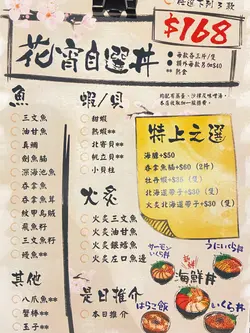 任選下列3款
$168
花宵自選丼
每款各三片/隻
額外每款另加$40
熱食
均配有蒸蛋、沙律及味噌湯,
本店收取加一服務費。
魚
三文魚
油甘魚
真鯛
劍魚腩
深海池魚
吞拿魚
吞拿魚茸
紋甲烏賊
飛魚子
三文魚籽
鰻魚**
其他
八爪魚**
蟹棒**
玉子**
蝦/貝
甜蝦
熟蝦**
北寄貝**
帆立貝**
小貝柱
火炙
火炙三文魚
火炙油甘魚
火炙銀鱈魚
火炙左口魚邊
是日推介
本日推介
特上之選
海膽+$50
吞拿魚腩+$60 (2片)
牡丹蝦+$30 (隻)
北海道帶子+$30 (隻)
火炙北海道帶子+$30 (隻)
サーモンいくら丼
うにいくら丼
海鮮丼
はらこ飯
いくら丼